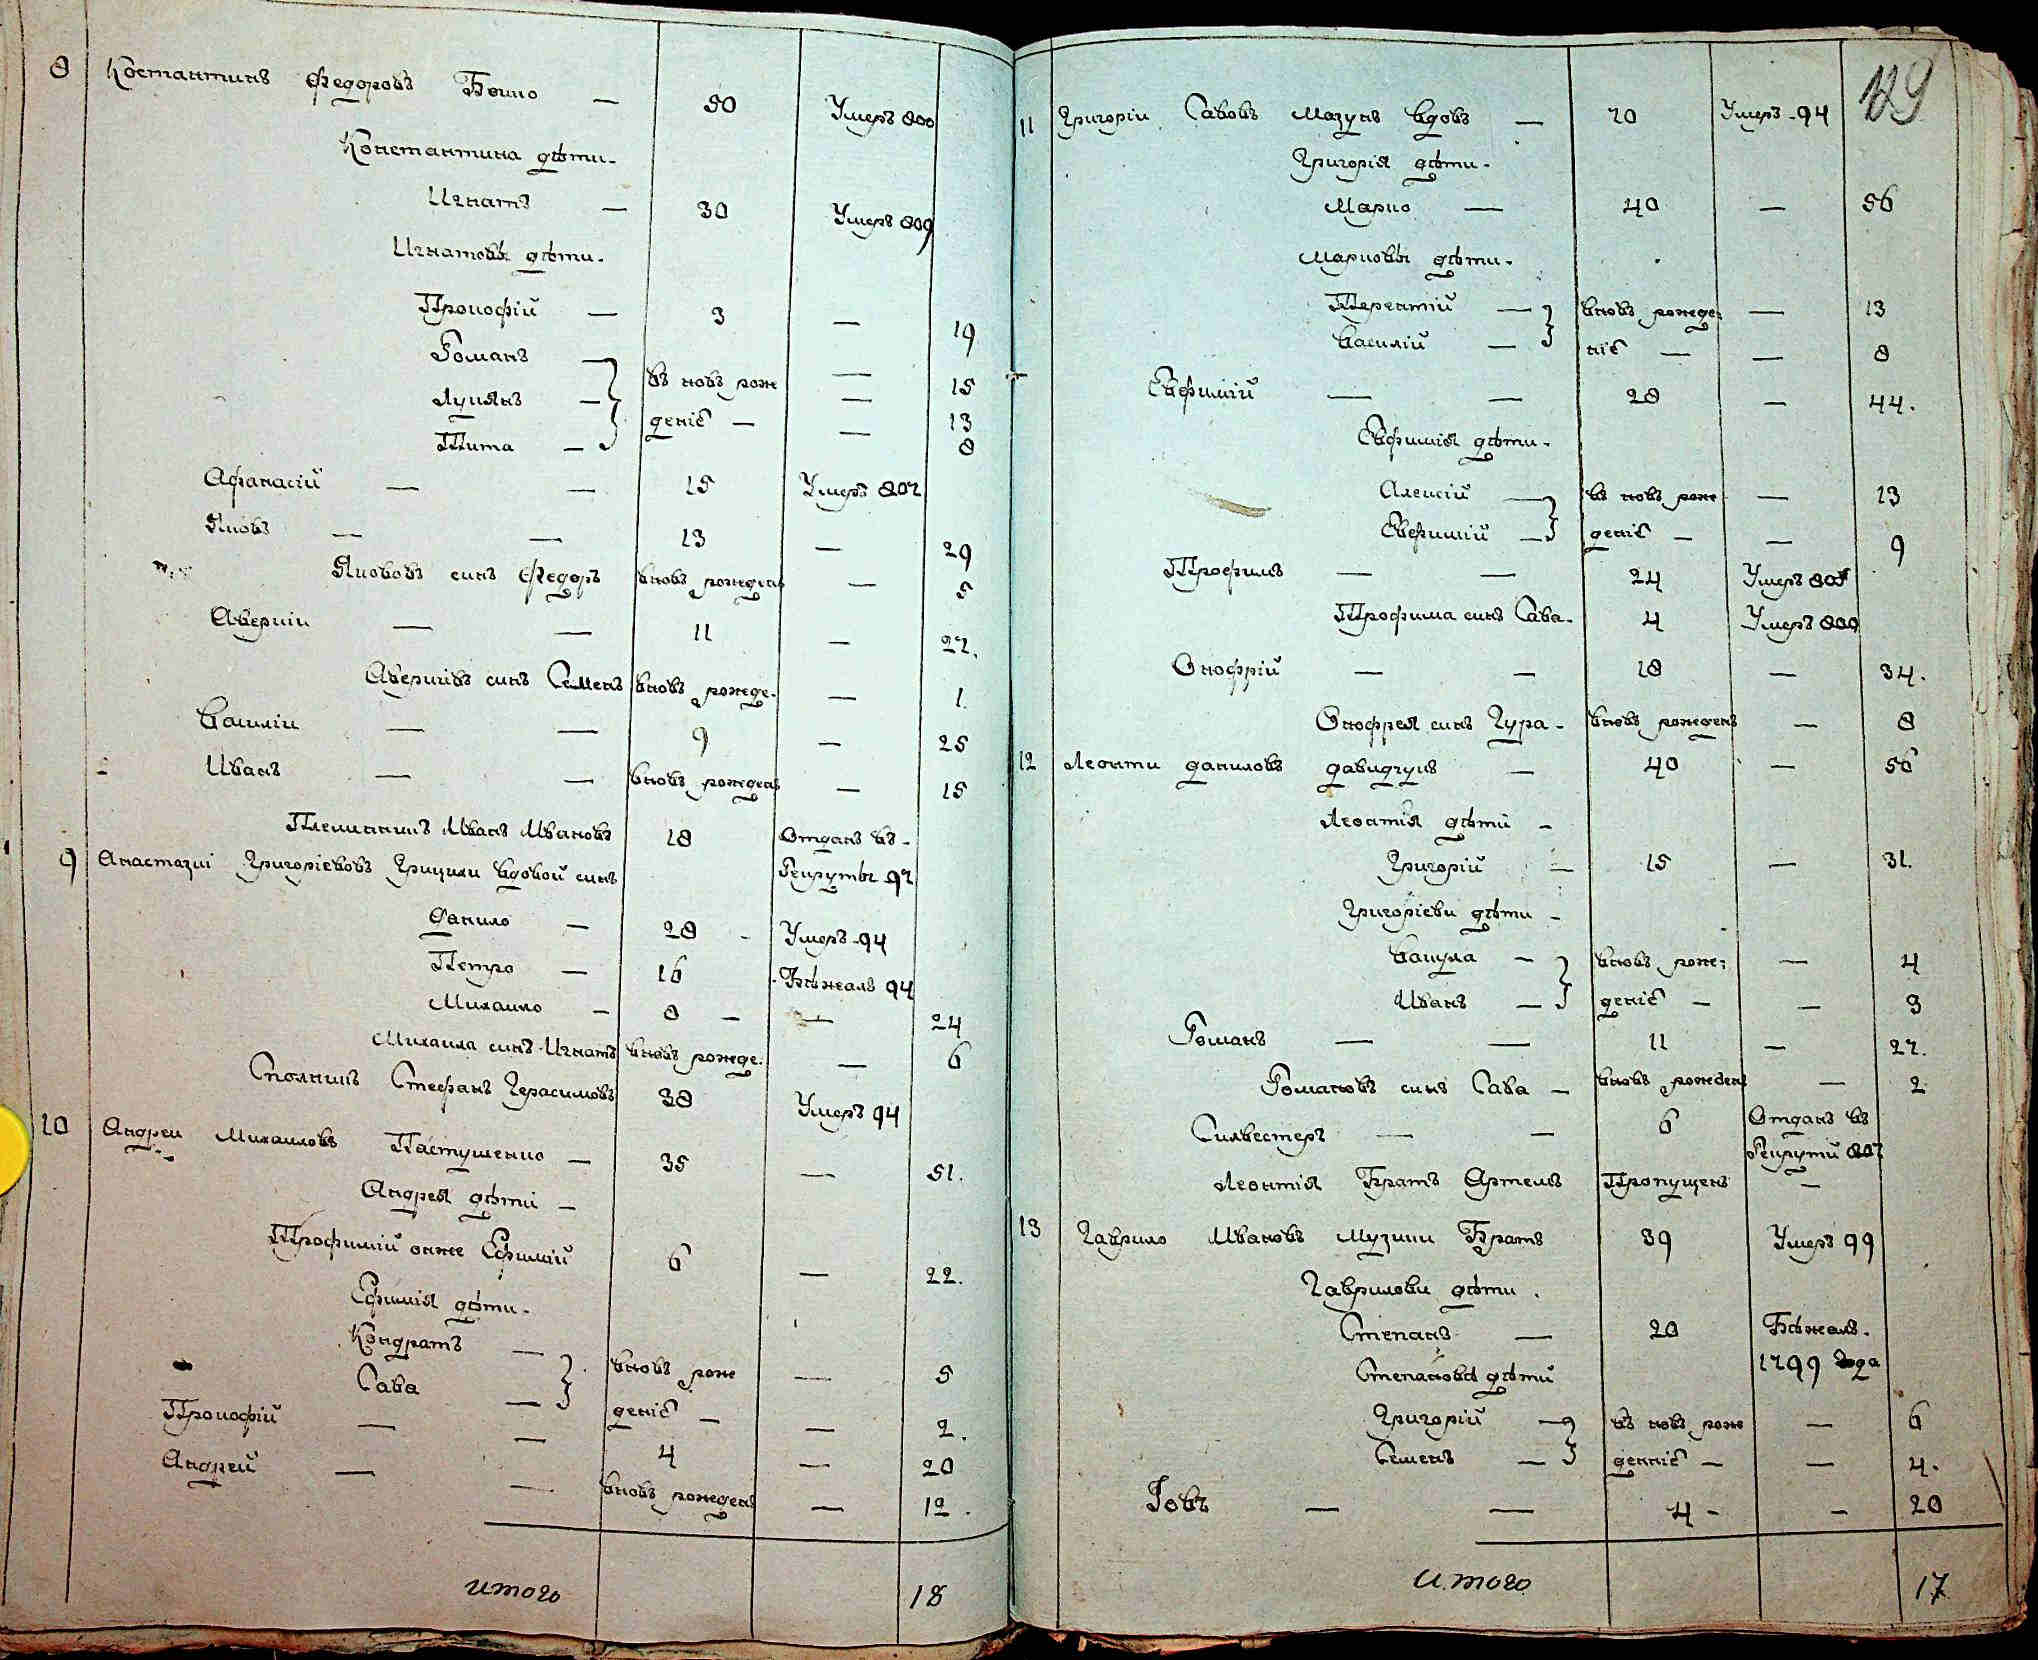 8 Костантинъ Федоровъ Бойко — 50 Умеръ 800
Константина дѣти.
Игнатъ — 30 Умеръ 809
Игнатовы дѣти.
Прокофій — 3 — 19
Романъ — въ новъ рож — 15
Лукянъ — — 13
Тита — деніе — — 8
Афанасій — — 15 Умеръ 807
Яковъ — — 13 — 29
Яковъ синъ Федоръ вновь рожденъ — 5
Аверкіи — — 11 — 27.
Аверкіевъ синъ Семенъ вновь рожде. — 1.
Василіи — — 9 — 25
Иванъ — — вновь рожденъ — 15
Племянникъ Иванъ Ивановъ 18 Отданъ въ
Рекруты 97
9 Анастазіи Григоріевовъ Грицики вдовой синъ
Данило — 28 - Умеръ -94
Петро — 16 Бѣжалъ 94
Михаило — 8 — — 24
Михаила синъ Игнатъ вновь рожде. — 6
Стефанъ Герасимовъ 38 Умеръ 94
10 Андреи Михаиловъ Пастушенко — 35 — 51.
Андрея дѣти —
Трофимій онже Ефимій 6 — 22.
Ефимія дѣти.
Кондратъ — вновь рож — 5
Сава — деніе — — 2.
Прокофій — — 4 — 20
Андрей — — вновь рожденъ — 12.
итого 18
119
11 Григоріи Савовъ Мазунъ вдовъ — 70 Умеръ -94
Григорія дѣти.
Марко — 40 — 56
Марковы дѣти.
Терентій — вновь рожде: — 13
Василій — ніе — — 8
Евфимій — — 28 — 44.
Евфимія дѣти.
Алексій — въ новъ рож — 13
Евфимій — деніе — — 9
Трофимъ — — 24 Умеръ
Трофима синъ Сава. 4 Умеръ 800
Онофрій — — 18 — 34.
Онофрея синъ Гура — вновь рожденъ — 8
12 Леонти Даниловъ Давидчукъ — 40 — 56
Леонтія дѣти —
Григорій — 15 — 31.
Григоріеви дѣти —
Вакула — вновь рож: — 4
Иванъ — деніе — — 3
Романъ — — 11 — 27.
Романовъ синъ Сава — вновь рожденъ — 2
Силвестеръ — — 6 Отданъ въ
Рекрути 807
Леонтія Братъ Артемъ Пропущенъ —
13 Гаврило Ивановъ Музики Братъ 39 Умеръ 99
Гаврилови дѣти.
Степанъ — 20 Бѣжалъ.
1799 года
Степановы дѣти
Григорій — въ новъ рож — 6
Семенъ — денніе — — 4.
Іовъ — — 4 - — 20
итого 17